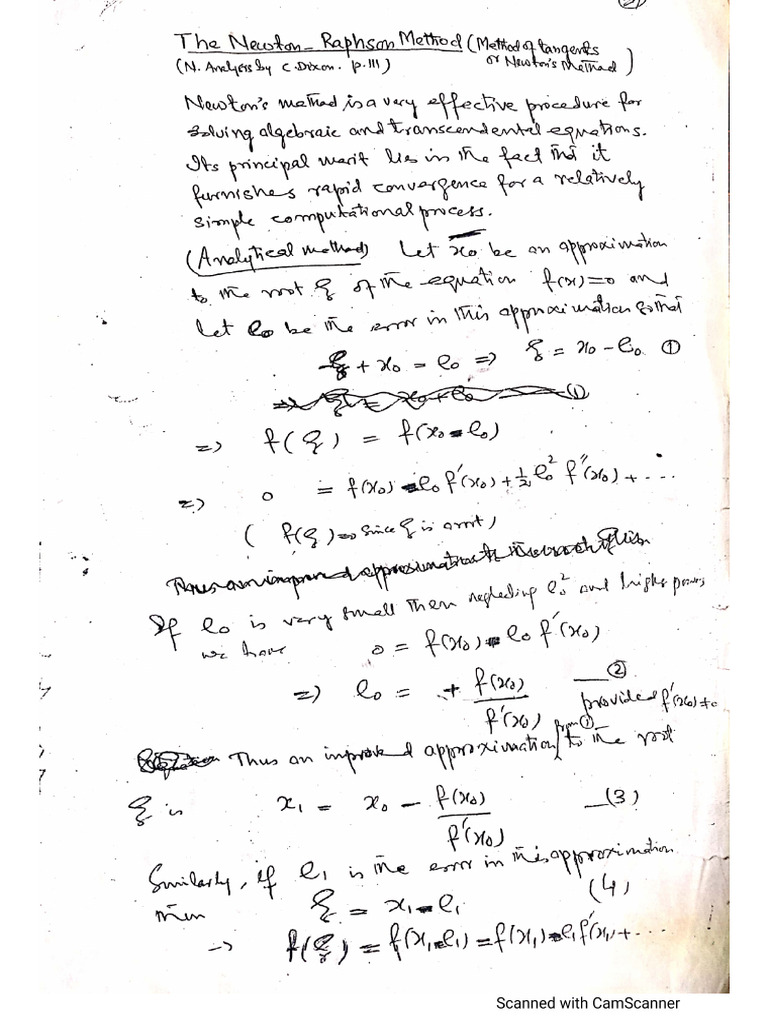 The Newton-Raphson Method (Method of tangents
or Newton's Method)
(N. Analysis by C. Dixon. p.111)
Newton's method is a very effective procedure for
solving algebraic and transcendental equations.
Its principal merit lies in the fact that it
furnishes rapid convergence for a relatively
simple computational process.
(Analytical method) Let x₀ be an approximation
to the root ξ of the equation f(x)=0 and
let e₀ be the error in this approximation so that
ξ + x₀ = e₀ => ξ = x₀ - e₀ ①
=> f(ξ) = f(x₀ - e₀)
=> 0 = f(x₀) - e₀ f'(x₀) + ½ e₀² f''(x₀) + ....
( f(ξ)=0 since ξ is a root)
If e₀ is very small then neglecting e₀² and higher powers
we have 0 = f(x₀) - e₀ f'(x₀)
=> e₀ = + f(x₀)/f'(x₀) — ② provided f'(x₀) ≠ 0
Thus an improved approximation from ① to the root
ξ is x₁ = x₀ - f(x₀)/f'(x₀) —(3)
Similarly, if e₁ is the error in this approximation
then ξ = x₁ - e₁ (4)
-> f(ξ) = f(x₁ - e₁) = f(x₁) - e₁f'(x₁) + ....
Scanned with CamScanner